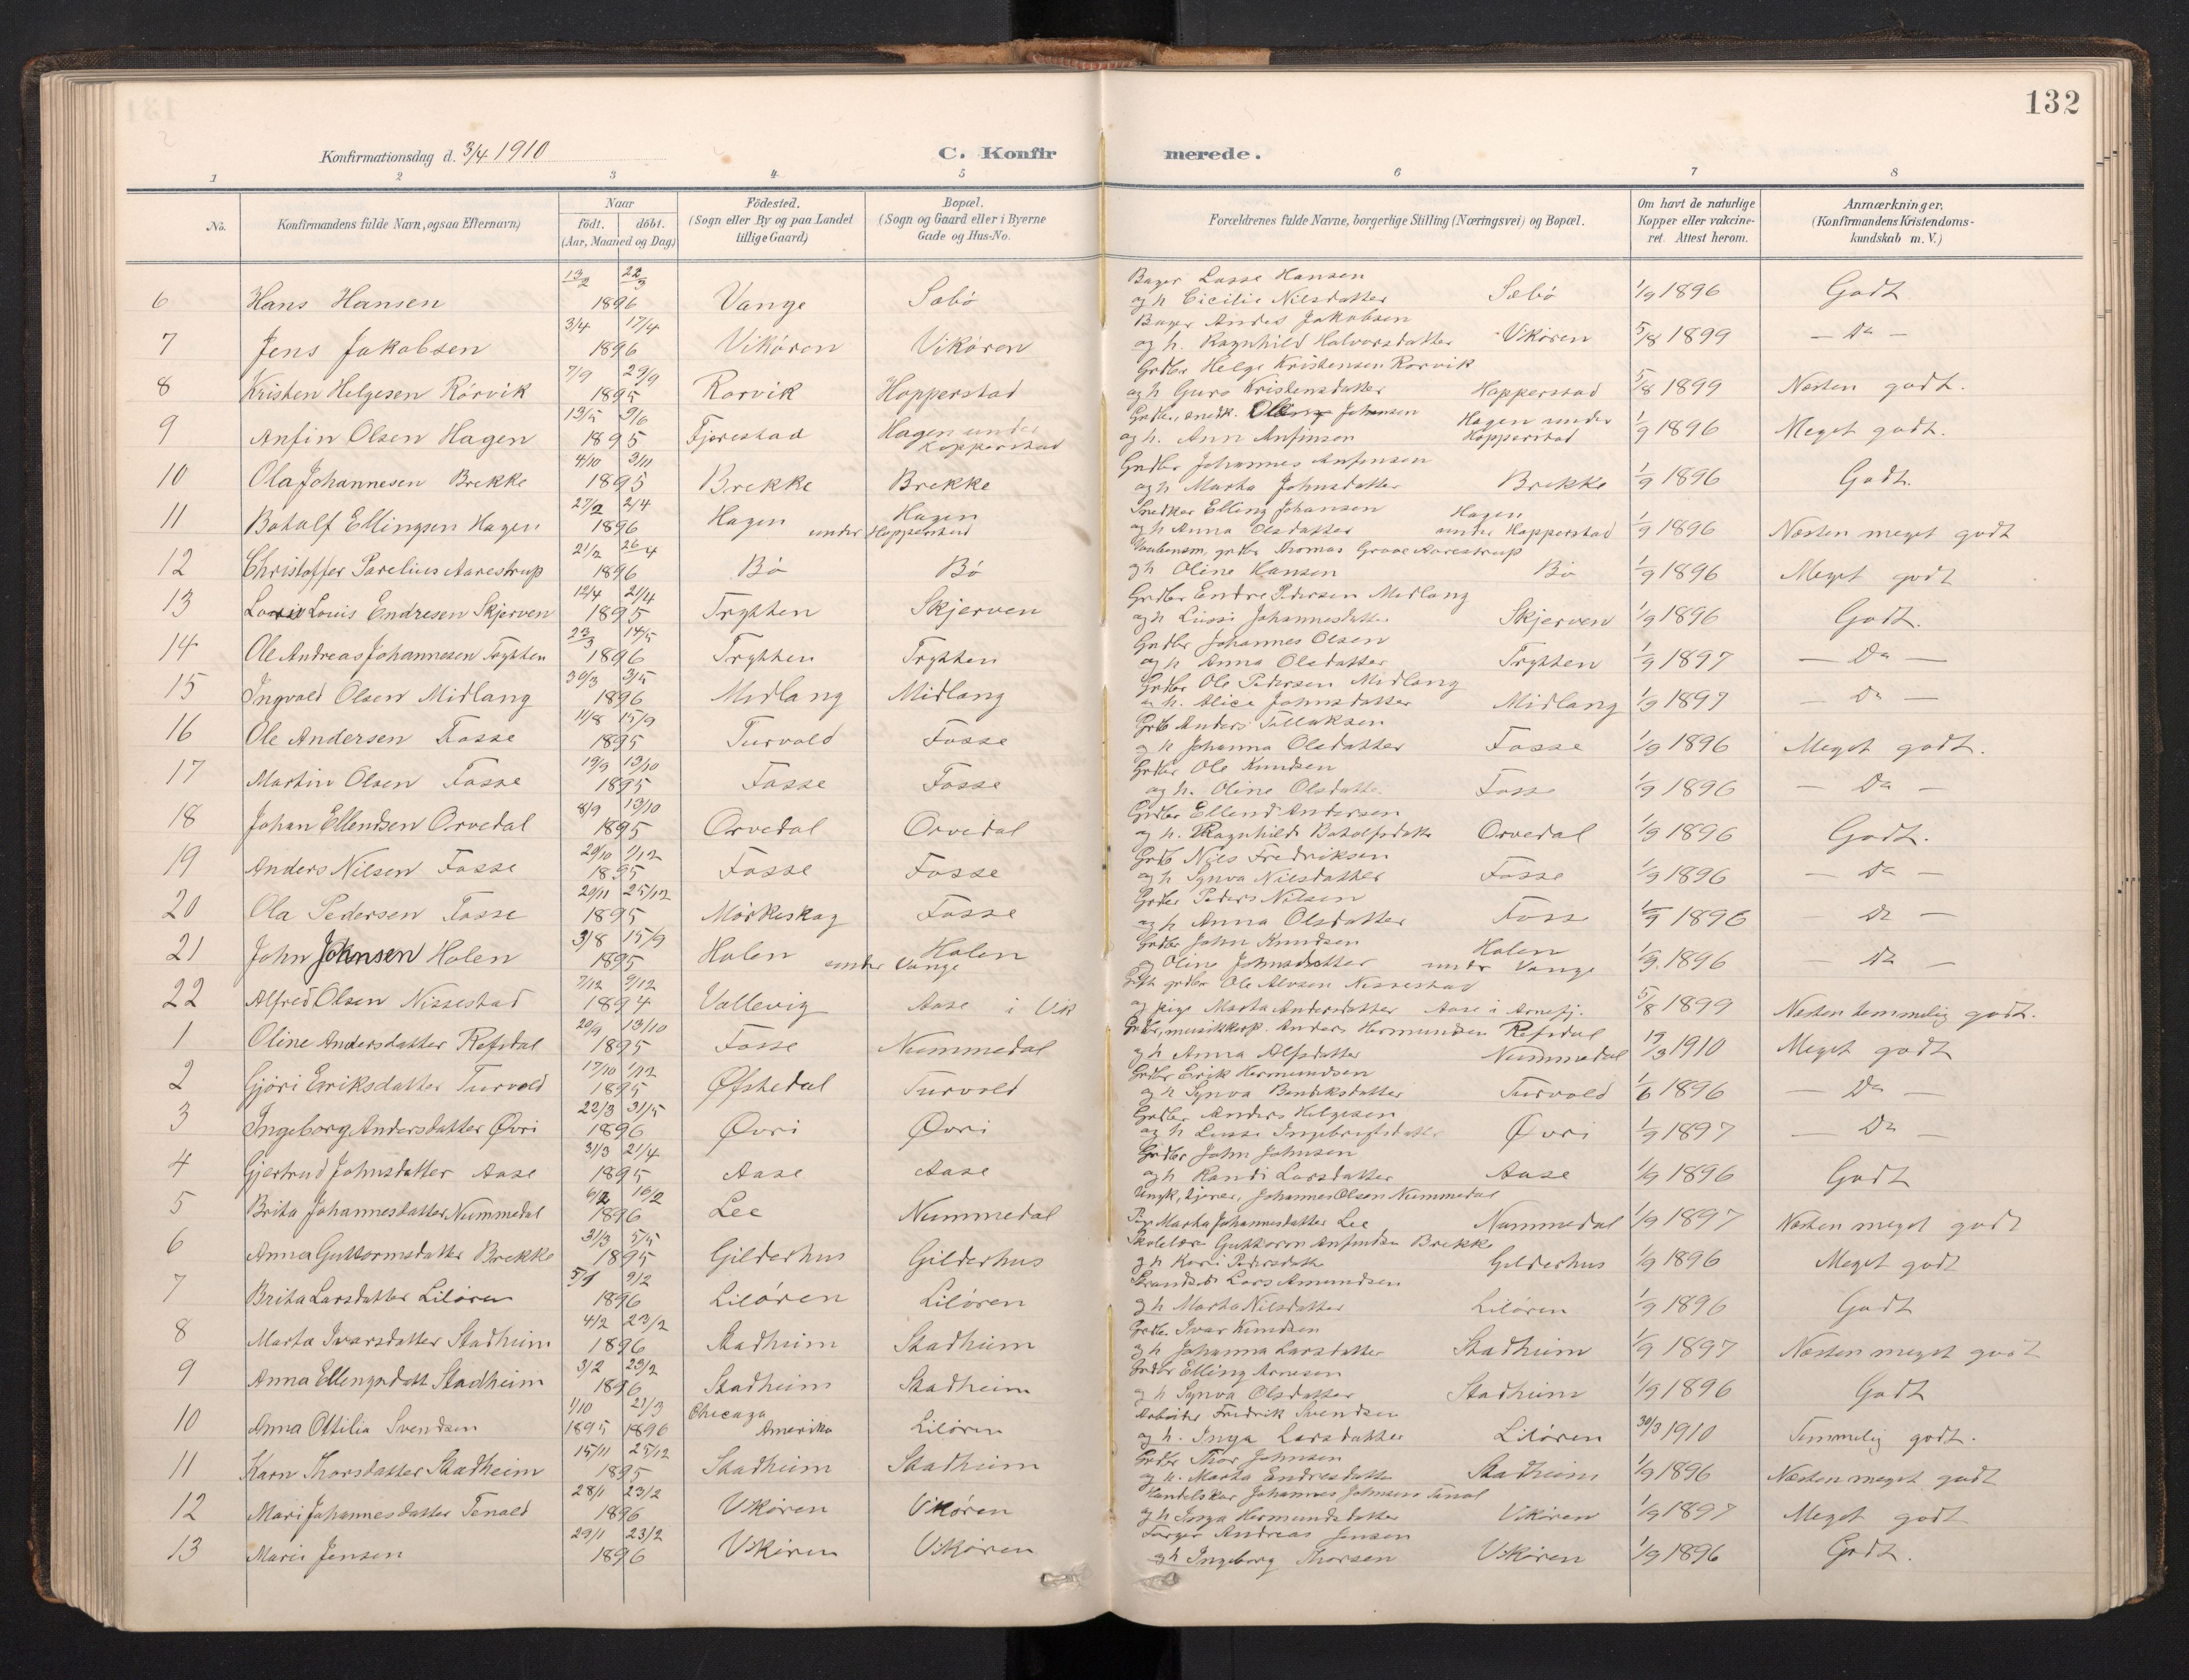 132
Konfirmationsdag d. 3/4 1910
C. Konfirmerede.
1 2 3 4 5 6 7 8
No.
Konfirmandens fulde Navn, ogsaa Efternavn)
Naar
födt. döbt.
(Aar, Maaned og Dag)
Födested.
(Sogn eller By og paa Landet
tillige Gaard)
Bopæl.
(Sogn og Gaard eller i Byerne
Gade og Hus-No.
Forældrenes fulde Navne, borgerlige Stilling (Næringsvei) og Bopæl.
Om havt de naturlige
Kopper eller vakcine-
ret. Attest herom.
Anmærkninger.
(Konfirmandens Kristendoms-
kundskab m. V.)
13/2 22/3 Bager Lasse Hansen
6 Hans Hansen 1896 Vange Sæbö og h Cicilie Nilsdatter Sæbö 1/9 1896 Godt
3/4 17/4 Bager Andes Jakobsen
7 Jens Jakobsen 1896 Vikören Vikören og h. Ragnhild Halvorsdatter Vikören 5/8 1899 — Do —
7/9 29/9 Grdbr Helge Kristensen Rorvik
8 Kristen Helgesen Rörvik 1895 Rorvik Hopperstad og h Guro Kristensdatter Hopperstad 5/8 1899 Næsten godt.
13/5 9/6 Johansen Hagen under
9 Anfin Olsen Hagen 1895 Fjørestad Hagen under Hopperstad og h. Ann Anfinson Hopperstad 1/9 1896 Meget godt.
4/10 3/11 Grdbr Johannes Anfinsen
10 Ola Johannesen Brekke 1895 Brekke Brekke og h Marta Johnsdatter Brekke 1/9 1896 Godt.
27/2 2/4 Snedker Elling Johansen Hagen
11 Botolf Ellingsen Hagen 1896 Hagen Hagen under Hopperstad og h Anna Olsdatter under Hopperstad 1/9 1896 Næsten meget godt
21/2 26/4 grdbr Thomas Grove Aarestrup
12 Christoffer Parelius Aarestrup 1896 Bö Bö og h Oline Hansen Bö 1/9 1896 Meget godt
12/4 21/4 Grdbr Endre Pedersen Midlang
13 Louis Endresen Skjerven 1895 Tryhten Skjerven og h Lussi Johannesdatter Skjerven 1/9 1896 Godt.
23/3 14/5 Grdbr Johannes Olsen
14 Ole Andreas Johannesen Tryhten 1896 Tryhten Tryhten og h Anna Olsdatter Tryhten 1/9 1897 — Do —
30/3 3/5 Grdbr Ole Pedersen Midlang
15 Ingvald Olsen Midlang 1896 Midlang Midlang og h. Alice Johnsdatter Midlang 1/9 1897 — Do —
11/8 15/9 Grdb Anders Tollaksen
16 Ole Andersen Fosse 1895 Turvold Fosse og h Johanna Olsdatter Fosse 1/9 1896 Meget godt.
19/9 13/10 Grdbr Ole Knudsen
17 Martin Olsen Fosse 1895 Fosse Fosse og h. Oline Olsdatte. Fosse 1/9 1896 — Do —
8/9 13/10 Grdbr Ellend Andersen
18 Johan Ellendsen Orvedal 1895 Orvedal Orvedal og h. Ragnhild Botolfsdatte Orvedal 1/9 1896 Godt.
20/10 1/12 Grdb Nils Fredriksen
19 Anders Nilsen Fosse 1895 Fosse Fosse og h Synva Nilsdatter Fosse 1/9 1896 — Do —
20/11 25/12 Grdbr Peders Nilsen
20 Ola Pedersen Fosse 1895 Mörkeskog Fosse og h Anna Olsdatter Fosse 1/9 1896 — Do —
3/8 15/9 Grdbr John Knudsen Holen
21 John Johnsen Holen 1895 Holen Holen under Vange og Oline Johnsdatter under Vange 1/9. 1896 — Do —
7/12 9/12 grdbr Ole Nissestad
22 Alfred Olsen Nissestad 1894 Vallevig Aase i Vik og pige Marta Andersdatter Aase i Arnefj. 5/8 1899 Næsten temmelig godt.
20/9 13/10 Anders Hermundsen Refsdal
1 Oline Andersdatter Refsdal 1895 Fosse Nummedal og h Anna Alfsdatter Nummedal 19/3 1910 Meget godt
17/10 1/12 Grdbr Erik Hermundsen
2 Gjöri Eriksdatter Turvold 1895 Øfstedal Turvold og h Synva Bendiksdatter Turvold 1/6 1896 — Do —
22/3 31/5 Grdbr Anders Helgesen
3 Ingeborg Andersdatter Øvri 1896 Øvri Øvri og h Lussi Ingebrigtsdatter Øvri 1/9 1897 — Do —
31/3 21/4 Grdbr John Johnsen
4 Gjertrud Johnsdatter Aase 1895 Aase Aase og h Randi Larsdatter Aase 1/9 1896 Godt
6/2 16/2 Ungk. Johannes Olsen Nummedal
5 Brita Johannesdatter Nummedal 1896 Lee Nummedal Pige Marta Johannesdatter Lee Nummedal 1/9 1897 Næsten meget godt
31/3 5/5 Skolelærer Guttorm Anfindsen Brekke
6 Anna Guttormsdatter Brekke 1895 Gilderhus Gilderhus og h Kari Pedersdatte Gilderhus 1/9 1896 Meget godt
5/1 9/2 Strandsid. Lars Amundsen
7 Brita Larsdatter Lilören 1896 Lilören Lilören og h Marta Nilsdatter Lilören 1/9 1896 Godt
4/2 23/2 Grdbr Ivar Knudsen
8 Marta Ivarsdatter Stadheim 1896 Stadheim Stadheim og h Johanna Larsdatter Stadheim 1/9 1897 Næsten meget godt
3/2 23/2 Grdbr Elling Arnesen
9 Anna Ellingsdatt Stadheim 1896 Stadheim Stadheim og h Synva Olsdatter Stadheim 1/9 1896 Godt
1/10 21/3 Chicago Arbeider Fredrik Svendsen
10 Anna Ottilia Svendsen 1895 1896 Amerika Lilören og h. Inga Larsdatter Lilören 30/3 1910 Temmelig godt.
15/11 25/12 Grdbr Thor Johnsen
11 Karn Thorsdatter Stadheim 1895 Stadheim Stadheim og h. Marta Endresdatte Stadheim 1/9 1896 Næsten meget godt
28/1 23/2 Handelskar Johannes Johnsen Tenol
12 Mari Johannesdatter Tenold 1896 Vikören Vikören og h Inga Hermundsdatter Vikören 1/9 1897 Meget godt
29/1 23/2 Farger Andreas Jensen
13 Marie Jensen 1896 Vikören Vikören og h Ingeborg Thorsen Vikören 1/9 1896 Godt.